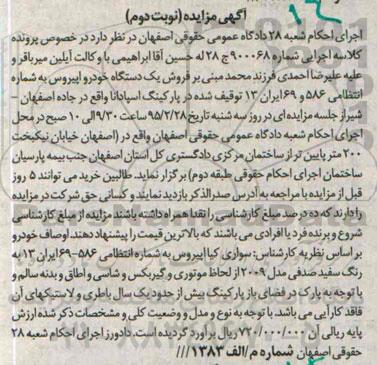 آگهی مزایده (نوبت دوم)
اجرای احکام شعبه ۲۸ دادگاه عمومی حقوقی اصفهان در نظر دارد در خصوص پرونده
کلاسه اجرایی شماره ۹۰۰۰۶۸ ج ۲۸ له حسین آقا ابراهیمی با وکالت آیلین میرباقر و
علیه علیرضا احمدی فرزند محمد مبنی بر فروش یک دستگاه خودرو اپیروس به شماره
انتظامی ۵۸۶ و ۶۹ ایران ۱۳ توقیف شده در پارکینگ اسپادانا واقع در جاده اصفهان -
شیراز جلسه مزایده ای در روز سه شنبه تاریخ ۹۵/۲/۲۸ ساعت ۹/۳۰ الی ۱۰ صبح در محل
اجرای احکام شعبه دادگاه عمومی حقوقی اصفهان واقع در (اصفهان خیابان نیکبخت
۲۰۰ متر پایین تر از ساختمان مرکزی دادگستری کل استان اصفهان جنب بیمه پارسیان
ساختمان اجرای احکام حقوقی طبقه دوم) برگزار نماید. طالبین خرید می توانند ۵ روز
قبل از مزایده با مراجعه به آدرس صدرالذکر بازدید نمایند و کسانی حق شرکت در مزایده
را دارند که ده درصد مبلغ کارشناسی را نقدا همراه داشته باشند مزایده از مبلغ کارشناسی
شروع و برنده فرد یا افرادی می باشند که بالاترین قیمت را پیشنهاد دهند. اوصاف خودرو
بر اساس نظریه کارشناس: سواری کیا اپیروس به شماره انتظامی ۵۸۶-۶۹ ایران ۱۳ به
رنگ سفید صدفی مدل ۲۰۰۹ از لحاظ موتوری و گیربکس و شاسی و اطاق و بدنه سالم و
با توجه به پارک در فضای باز پارکینگ بیش از حدود یک سال باطری و لاستیکهای آن
فاقد کارآیی می باشد. با توجه به نوع و مدل و وضعیت کلی و مشخصات ذکر شده ارزش
پایه ریالی آن ۷۲۰/۰۰۰/۰۰۰ ریال برآورد گردیده است. دادورز اجرای احکام شعبه ۲۸
حقوقی اصفهان شماره م/الف ۱۳۸۳ ///